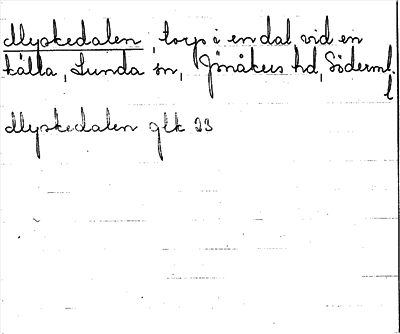 Myskedalen, torp i en dal vid en
källa, Lunda sn, Jönåkers hd, Söderml.
l
Myskedalen glk 33